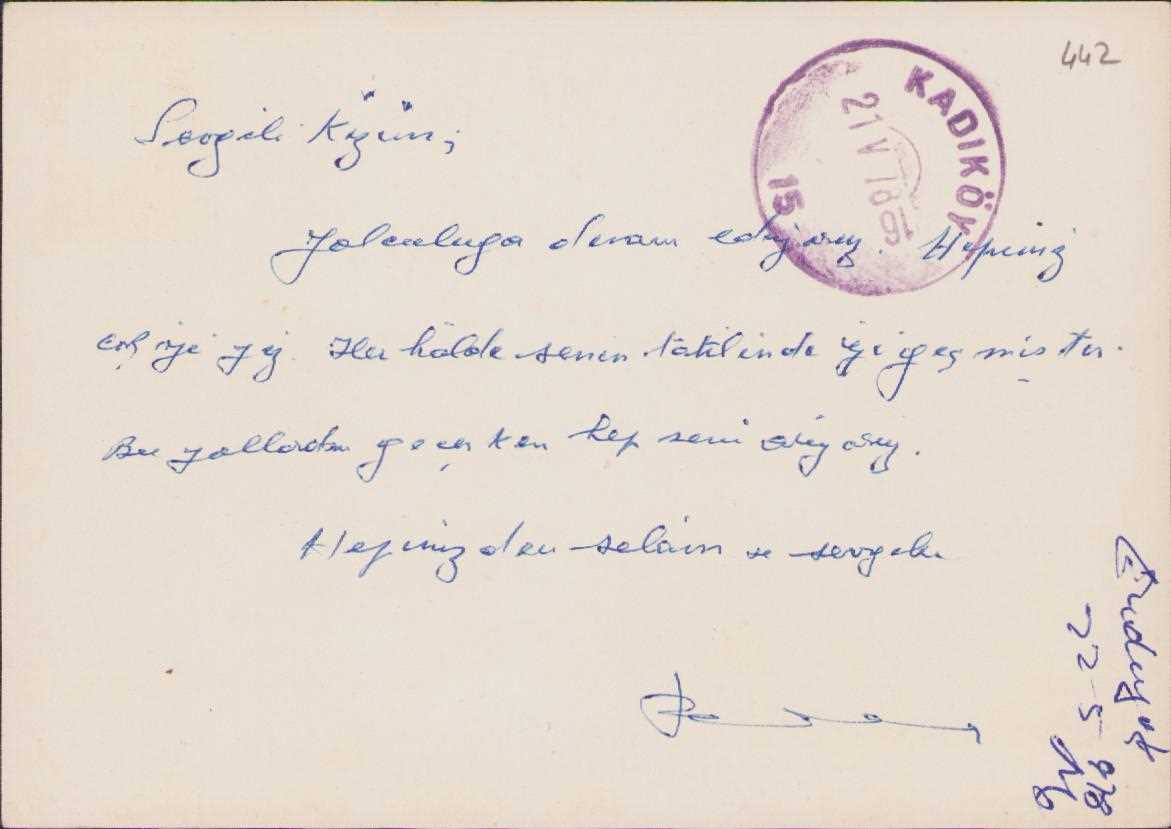 442
KADIKÖY
21 V 1971
15
Sevgili
Yolculuğa devam ediyoruz. Hepimiz
çok iyi yiz. Her hâlde senin tâtilinde iyi geçmiştir.
Bu yollardan geçerken hep seni
Hepimizden selâm ve sevgiler
22-5-978